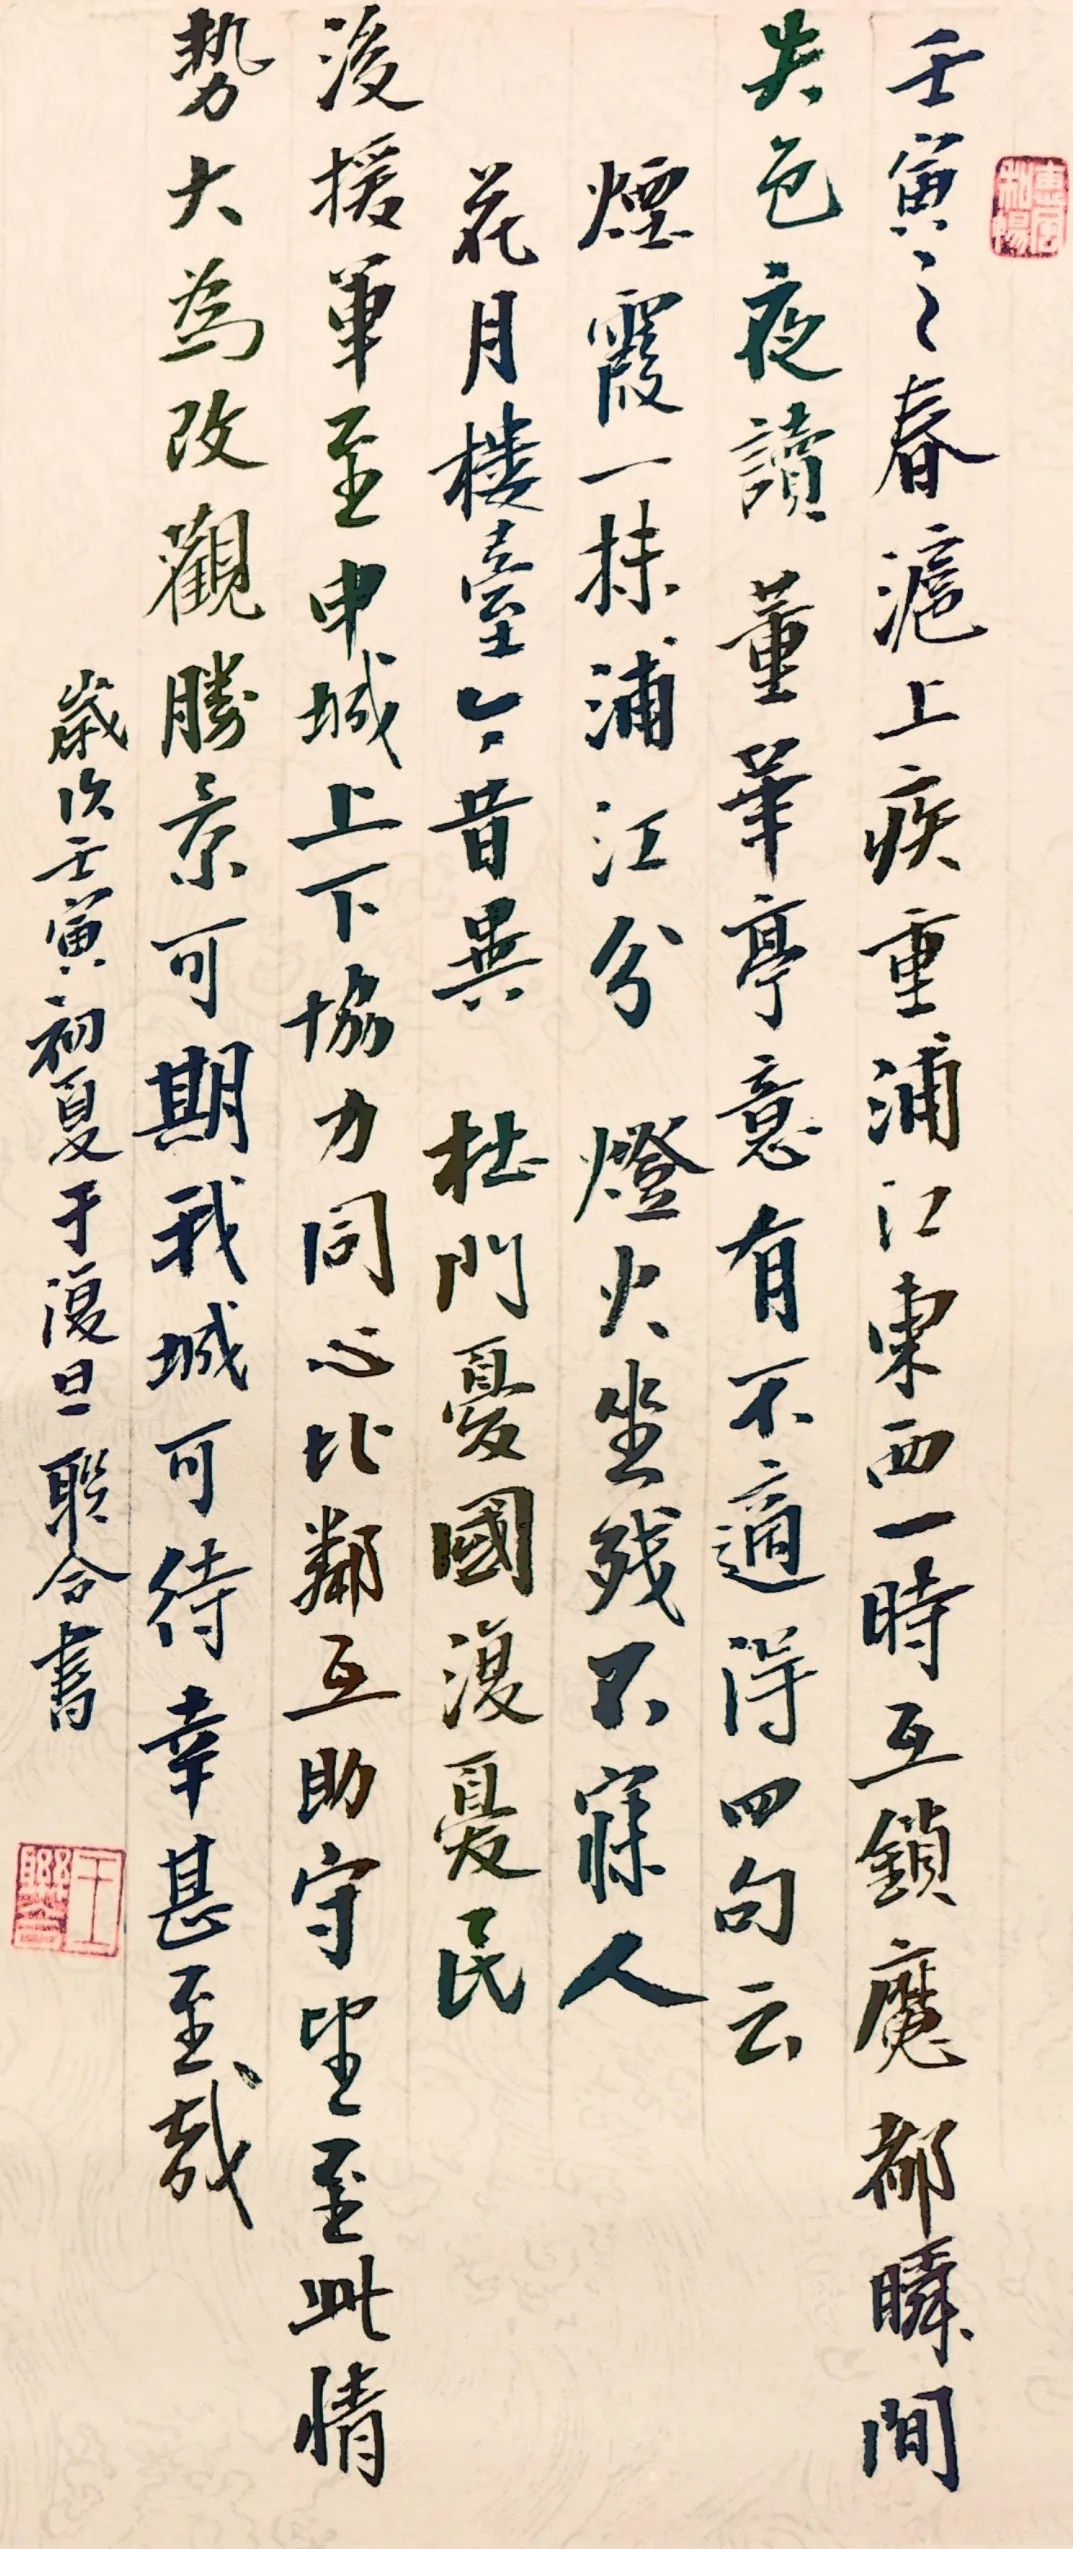 惠風和暢
壬寅之春滬上疾重浦江東西一時互鎖魔都瞬間
失色夜讀董華亭意有不適得四句云
煙霞一抹浦江分 燈火坐残不寐人
花月楼臺今昔異 杜門憂國復憂民
後援軍至申城上下協力同心比鄰互助守望至此情
勢大為改觀勝景可期我城可待幸甚至哉
歲次壬寅初夏于復旦聯合書
王聯合